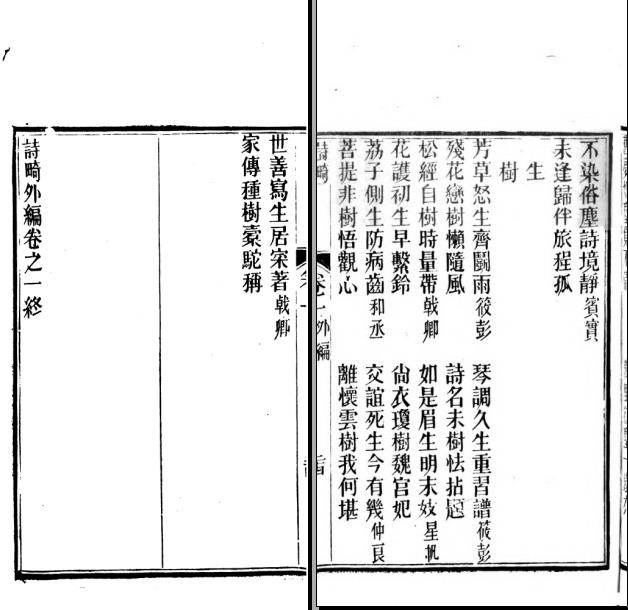 不染俗塵詩境靜賓實
未逢歸伴旅程孤
生
樹
芳草怒生齊鬭雨筱彭　琴調久生重習譜筱彭
殘花戀樹懶隨風　詩名未樹怯拈題
松經自樹時量帶戟卿　如是眉生明末妓星帆
花護初生早繫鈴　尙衣瓊樹魏官妃
荔子側生防病齒和丞　交誼死生今有幾仲良
菩提非樹悟觀心　離懷雲樹我何堪
詩畸　卷一外編
世善寫生居宋著戟卿
家傳種樹豪駝稱
詩畸外編卷之一終